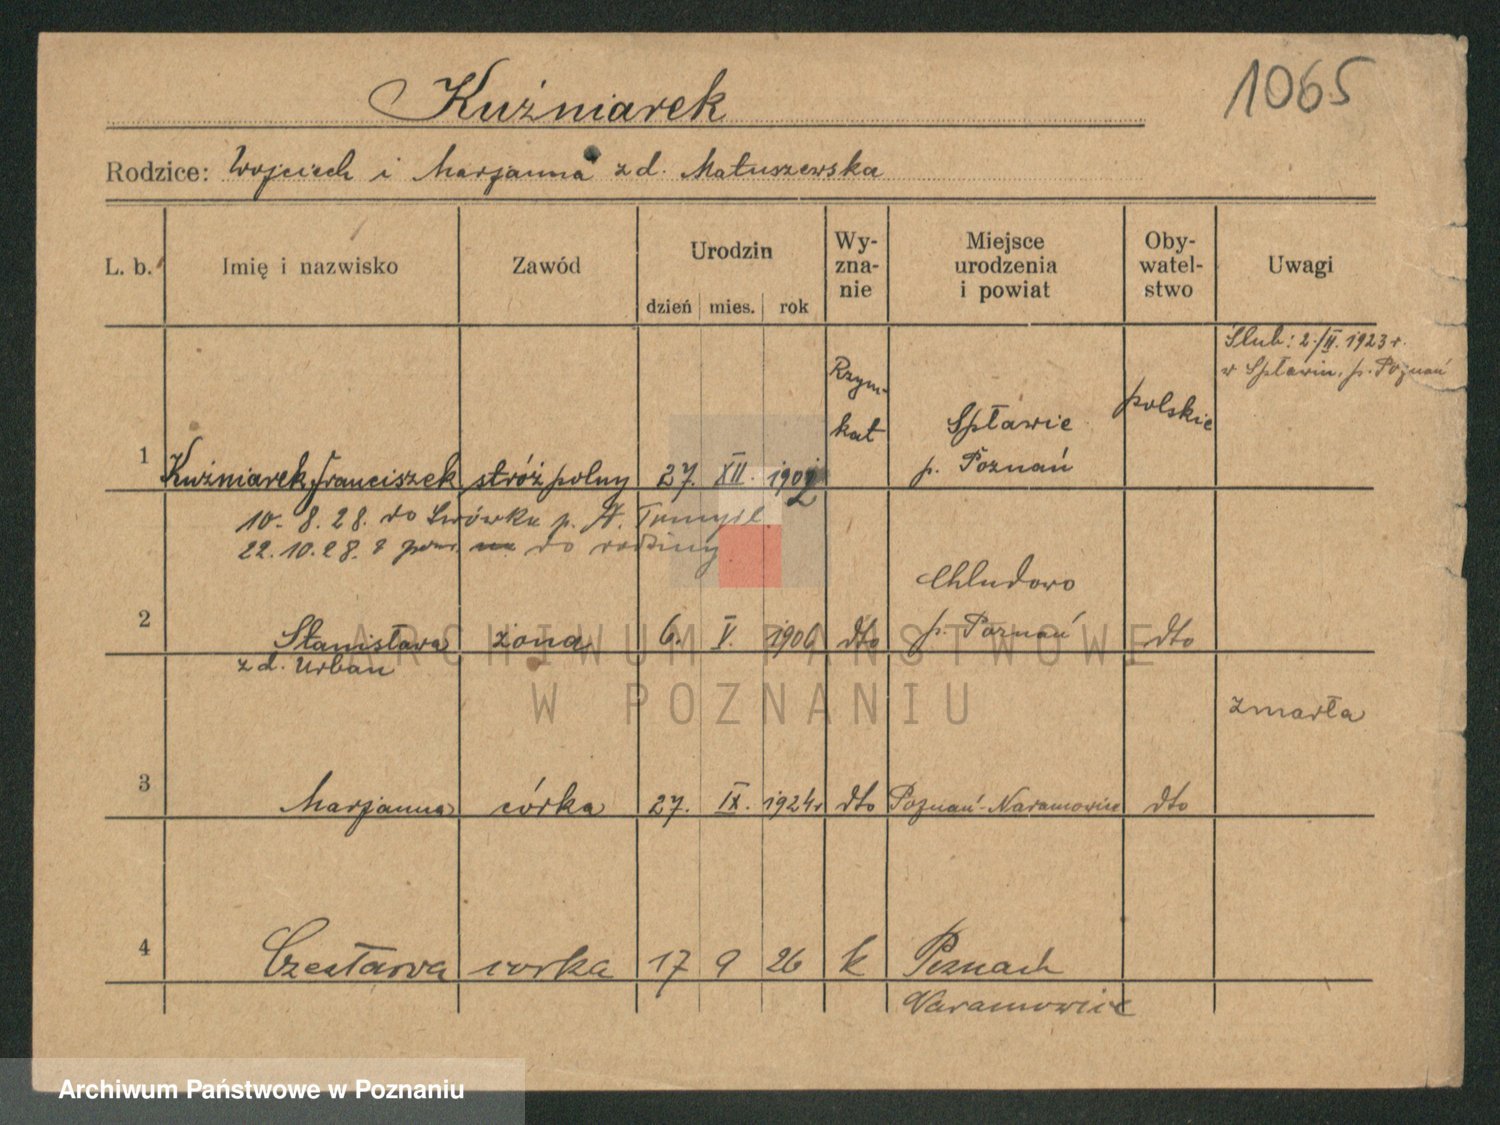 1065
Kuźniarek
Rodzice: Wojciech i Marjanna z d. Matuszewska
L. b. Imię i nazwisko Zawód Urodzin dzień mies. rok Wy-zna-nie Miejsce urodzenia i powiat Oby-watel-stwo Uwagi
Ślub: 2./II. 1923 r.
w Spławiu, p. Poznań
1 Kuźniarek Franciszek stróż polny 27. XII. 1902 Rzym-kat Spławie p. Poznań polskie
10. 8. 28. do Lwówka p. N. Tomyśl.
22. 10. 28. do rodziny
2 Stanisława żona 6. V. 1906 dto Chludowo p. Poznań dto
z d. Urban
zmarła
3 Marjanna córka 27. IX. 1924 r dto Poznań-Naramowice dto
4 Czesława corka 17 9 26 k Poznań
Naramowice
ARCHIWUM PAŃSTWOWE
W POZNANIU
Archiwum Państwowe w Poznaniu